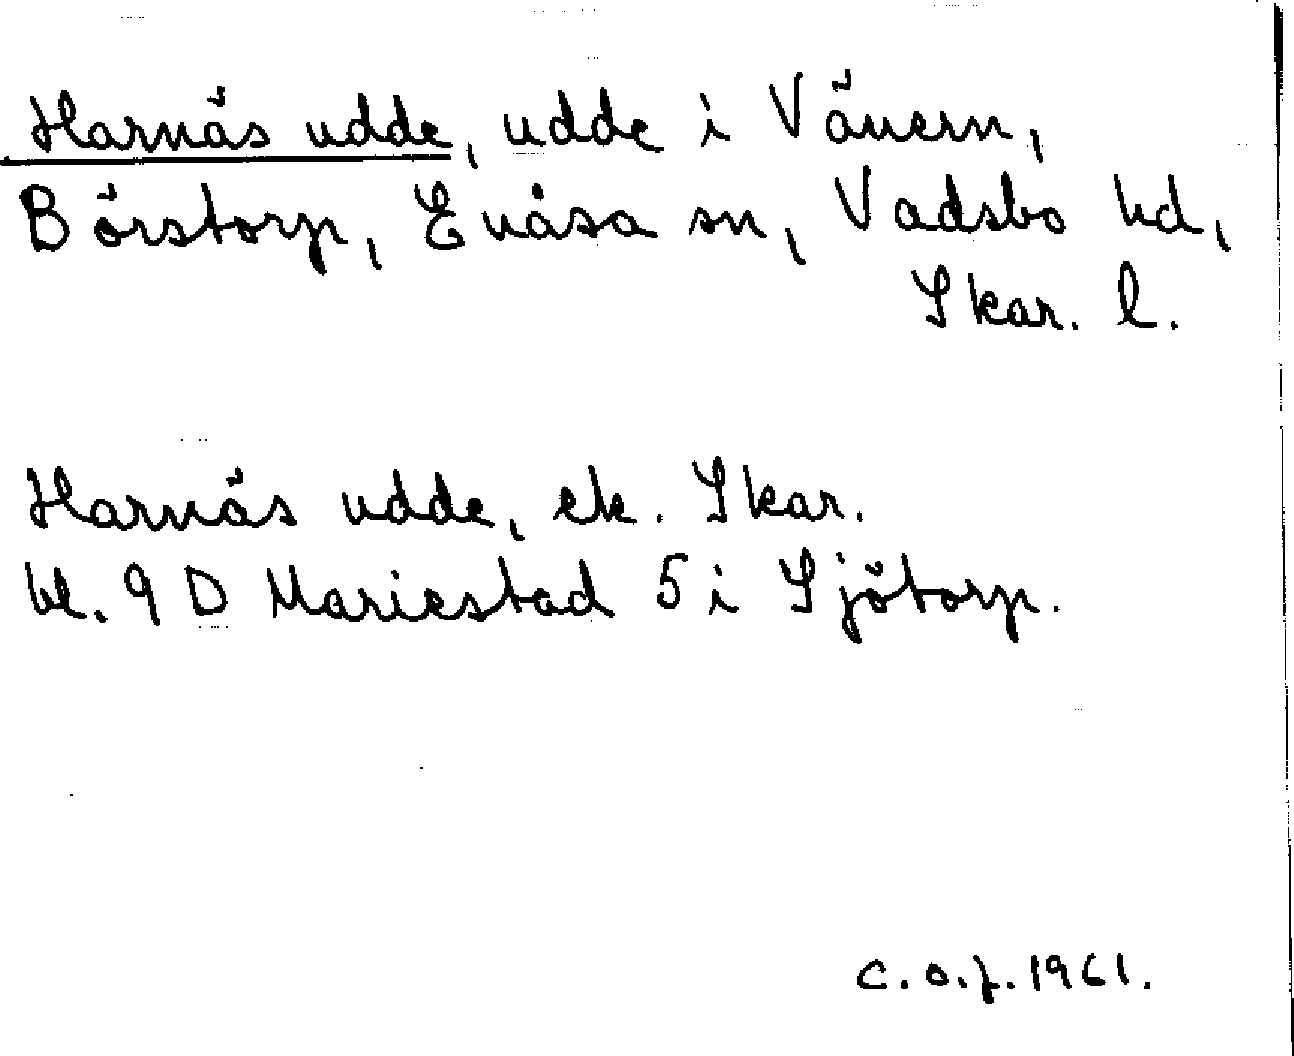 Harnäs udde, udde i Vänern,
Börstorp, Enåsa sn, Vadsbo hd,
Skar. l.
Harnäs udde, ek. Skar.
bl. 9 D Mariestad 5 i Sjötorp.
C.O.J. 1961.